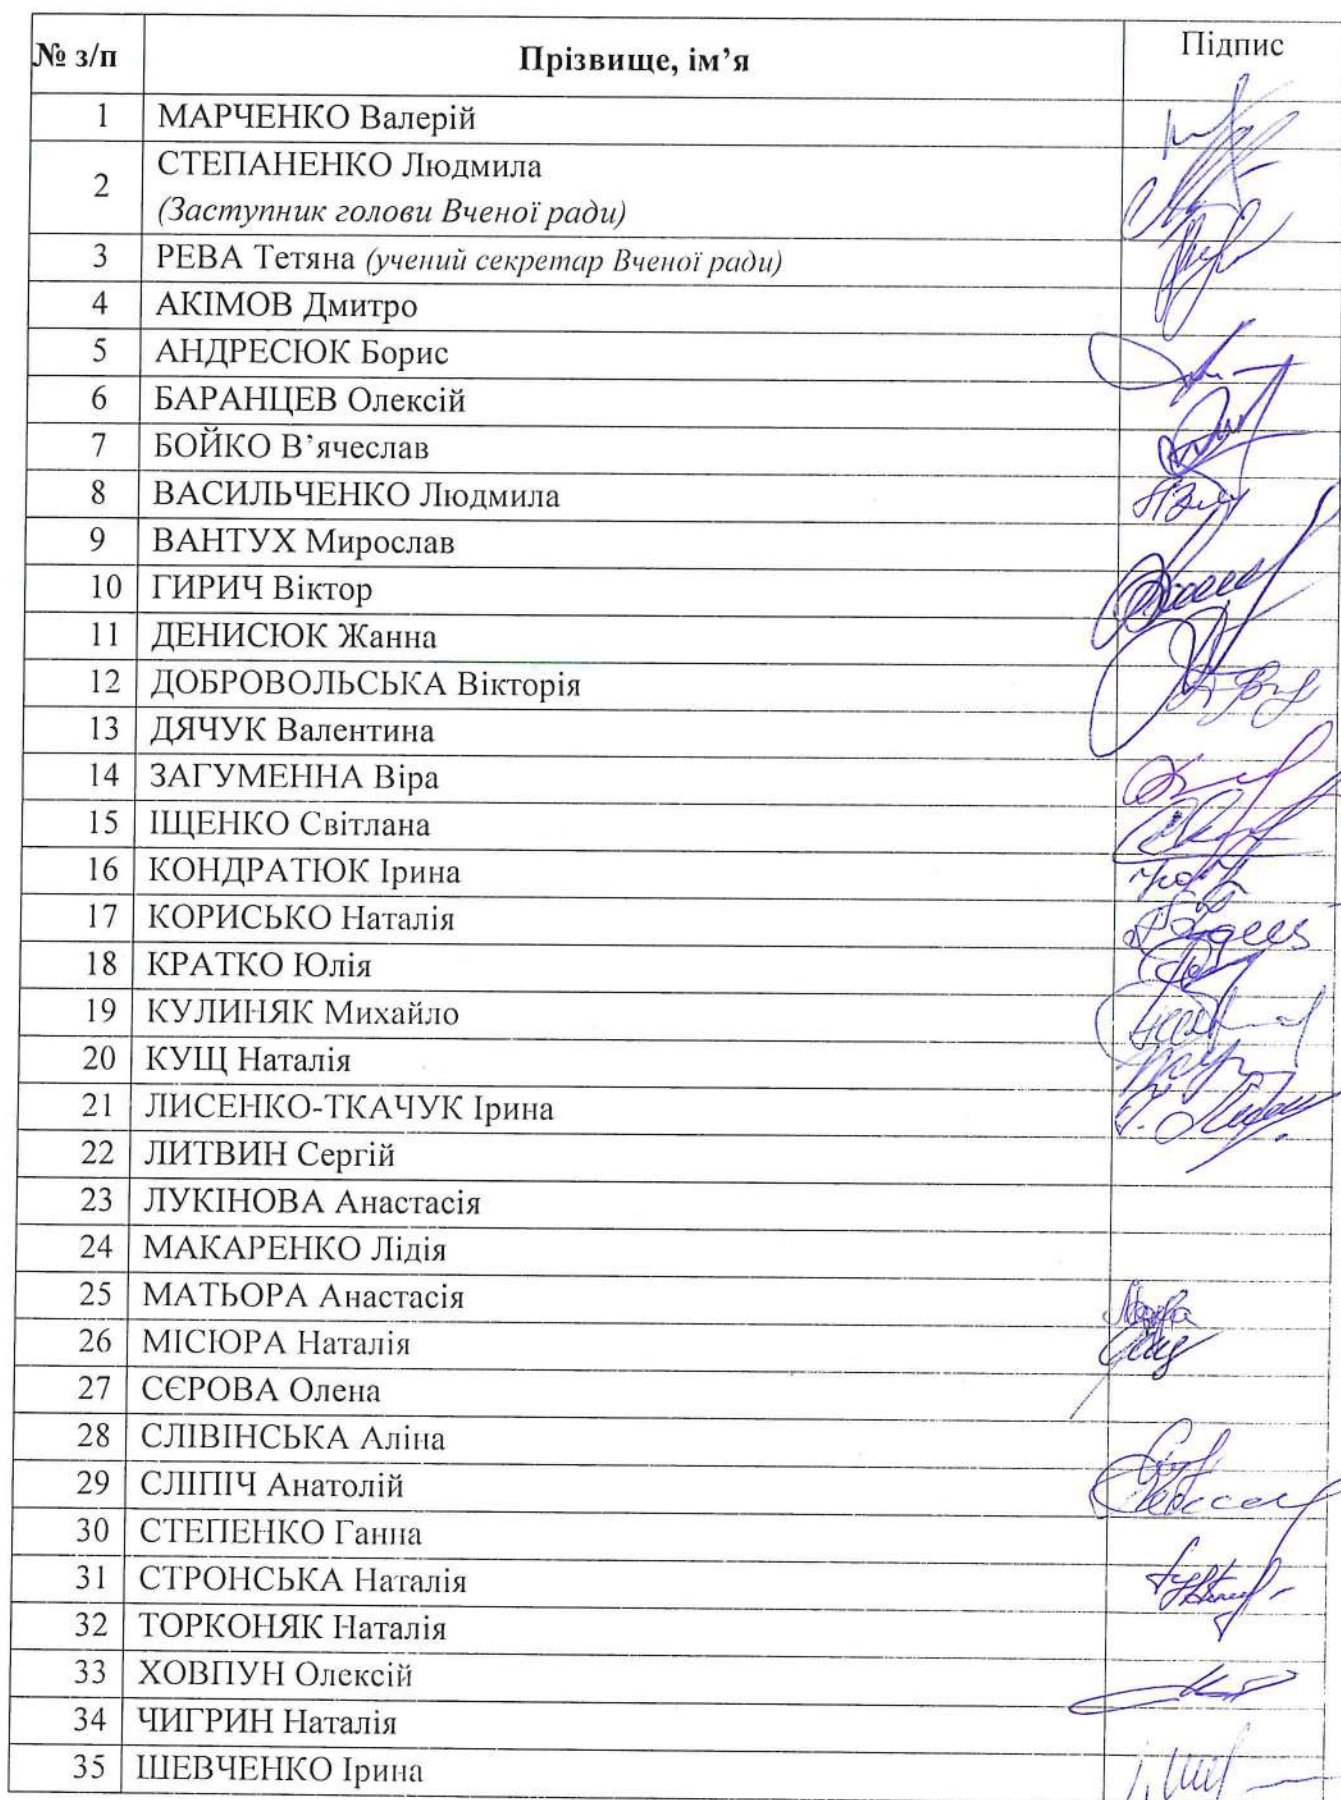 № з/п Прізвище, ім’я Підпис
1 МАРЧЕНКО Валерій
2 СТЕПАНЕНКО Людмила
(Заступник голови Вченої ради)
3 РЕВА Тетяна (учений секретар Вченої ради)
4 АКІМОВ Дмитро
5 АНДРЕСЮК Борис
6 БАРАНЦЕВ Олексій
7 БОЙКО В’ячеслав
8 ВАСИЛЬЧЕНКО Людмила
9 ВАНТУХ Мирослав
10 ГИРИЧ Віктор
11 ДЕНИСЮК Жанна
12 ДОБРОВОЛЬСЬКА Вікторія
13 ДЯЧУК Валентина
14 ЗАГУМЕННА Віра
15 ІЩЕНКО Світлана
16 КОНДРАТЮК Ірина
17 КОРИСЬКО Наталія
18 КРАТКО Юлія
19 КУЛИНЯК Михайло
20 КУЩ Наталія
21 ЛИСЕНКО-ТКАЧУК Ірина
22 ЛИТВИН Сергій
23 ЛУКІНОВА Анастасія
24 МАКАРЕНКО Лідія
25 МАТЬОРА Анастасія
26 МІСЮРА Наталія
27 СЄРОВА Олена
28 СЛІВІНСЬКА Аліна
29 СЛІПІЧ Анатолій
30 СТЕПЕНКО Ганна
31 СТРОНСЬКА Наталія
32 ТОРКОНЯК Наталія
33 ХОВПУН Олексій
34 ЧИГРИН Наталія
35 ШЕВЧЕНКО Ірина